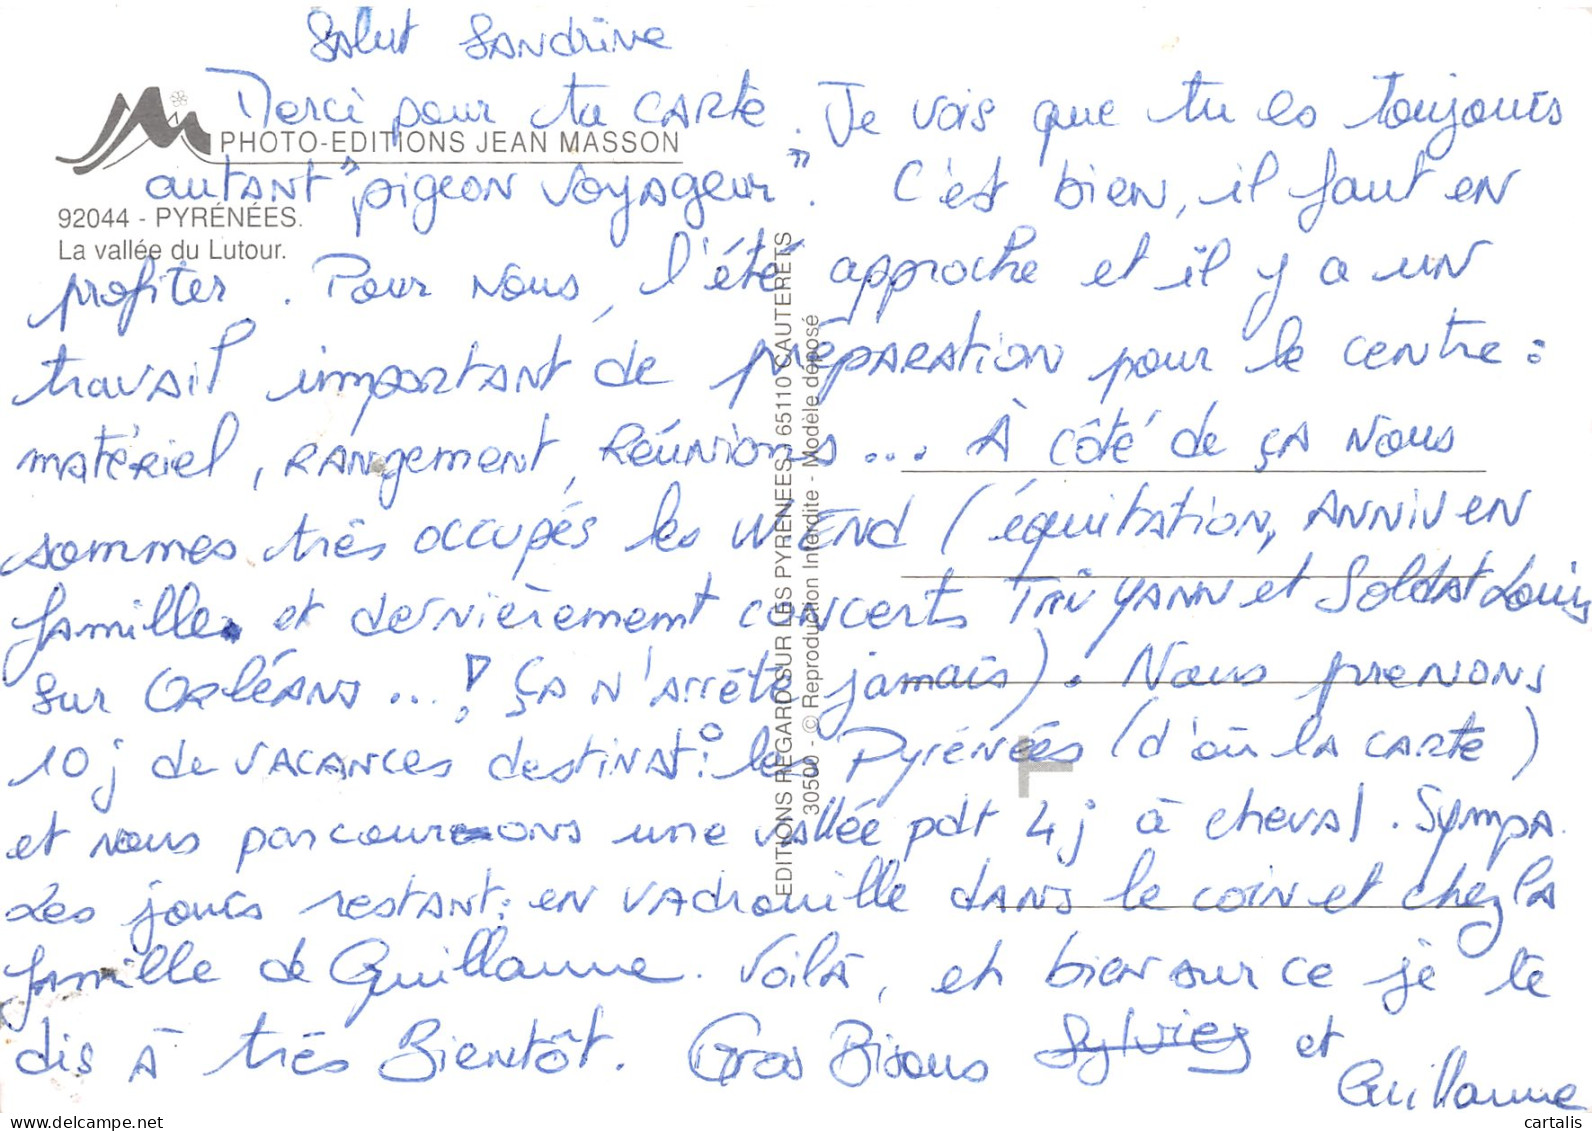 Salut Sandrine
Merci pour ta carte. Je vois que tu es toujours
PHOTO-EDITIONS JEAN MASSON
autant "pigeon voyageur". C'est bien, il faut en
92044 - PYRÉNÉES.
La vallée du Lutour.
profiter. Pour nous, l'été approche et il y a un
travail important de préparation pour le centre :
matériel, rangement, réunions... À côté de ça nous
sommes très occupés les W END (équitation, anniv en
famille et dernièrement concerts Tri Yann et Soldat Louis
sur Orléans...! Ça n'arrête jamais). Nous prenons
10 j de vacances destinat°: les Pyrénées (d'où la carte)
et nous parcourons une vallée pdt 4 j à cheval. Sympa.
Les jours restant: en vadrouille dans le coin et chez la
famille de Guillaume. Voilà, eh bien sur ce je te
dis à très Bientôt. Gros Bisous Sylvie et
Guillaume
EDITIONS REGARDS SUR LES PYRENEES 65110 CAUTERETS
30500 - © Reproduction Interdite - Modèle déposé
cartalis